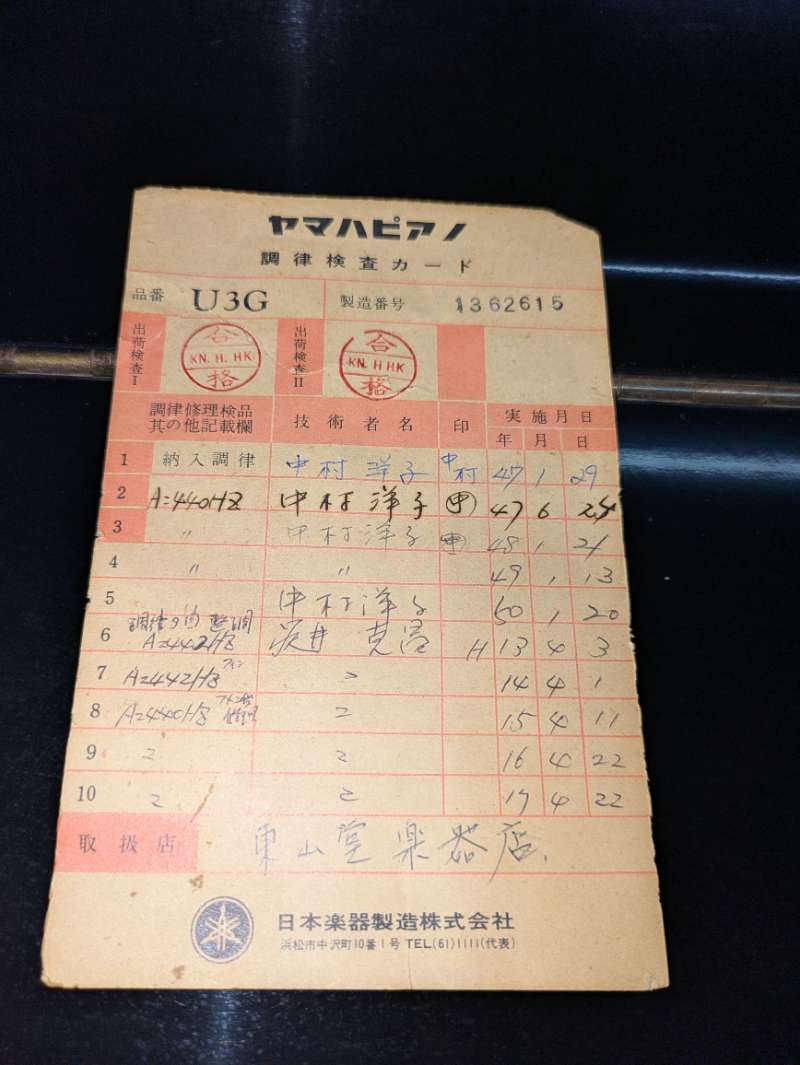 ヤマハピアノ
調律検査カード
品番 U3G 製造番号 1362615
出荷検査I 合格 KN. H. HK 出荷検査II 合格 KN. H HK
調律修理検品其の他記載欄 技術者名 印 実施月日
年 月 日
1 納入調律 中村洋子 中村 47 1 29
2 A=440HZ 中村洋子 中 47 6 24
3 〃 中村洋子 中 48 1 21
4 〃 〃 49 1 13
5 中村洋子 50 1 20
6 A=442HZ 井 克 H13 4 3
7 A=442HZ 〃 14 4 1
8 A=440HZ 〃 15 4 11
9 〃 〃 16 4 22
10 〃 〃 17 4 22
取扱店 東山堂楽器店.
日本楽器製造株式会社
浜松市中沢町10番1号 TEL(61)1111(代表)